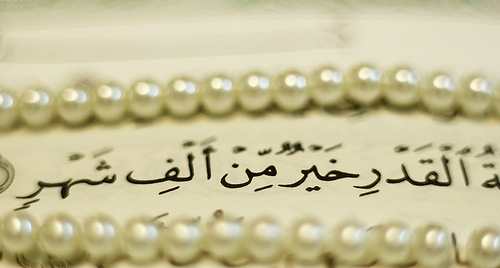 ةُ ٱلۡقَدۡرِ خَيۡرٞ مِّنۡ أَلۡفِ شَهۡرٖ